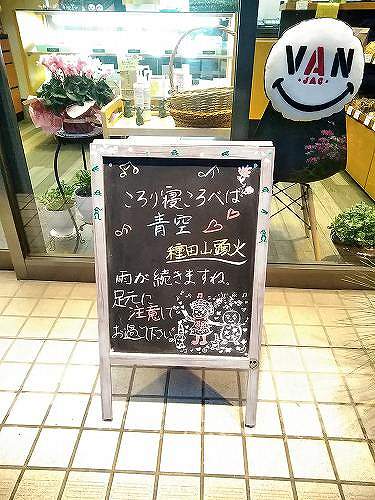 VAN
JAC
ころり寝ころべば
青空
種田山頭火
雨が続きますね。
足元に
注意して
お過ごし下さい。